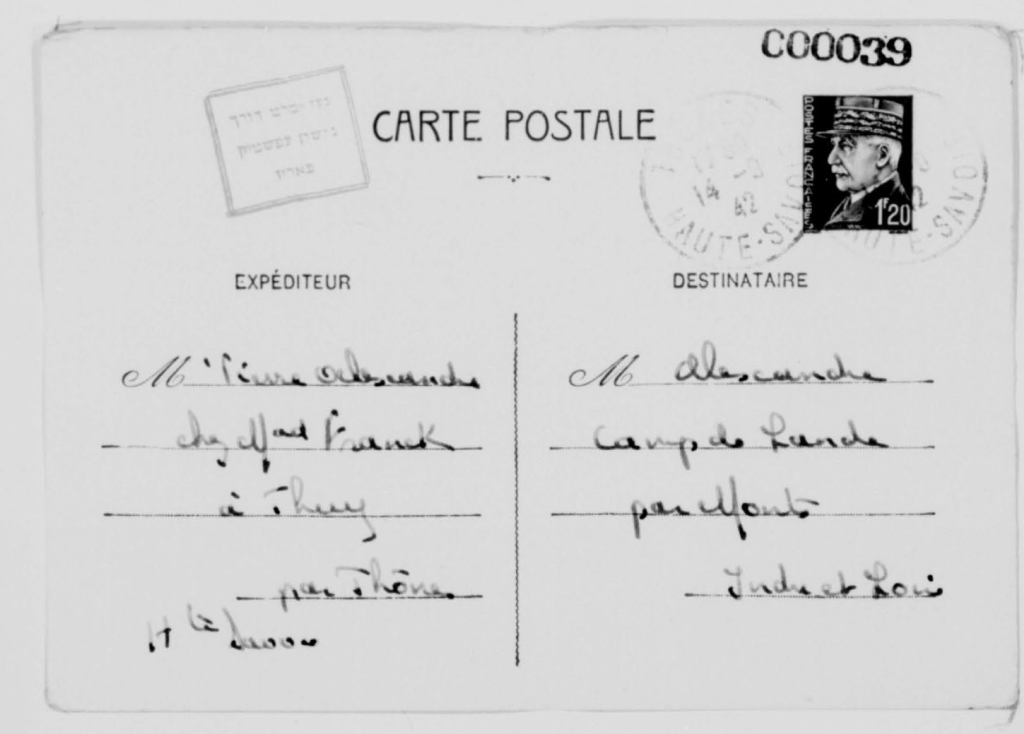 C00039
CARTE POSTALE
POSTES FRANÇAISES
1F20
14 42
HAUTE-SAVOIE
EXPÉDITEUR
Mr Pierre Alexandre
chez Mad Franck
à Thuy
par Thônes
Hte Savoie
DESTINATAIRE
M Alexandre
Camp de Lande
par Monts
Indre et Loire